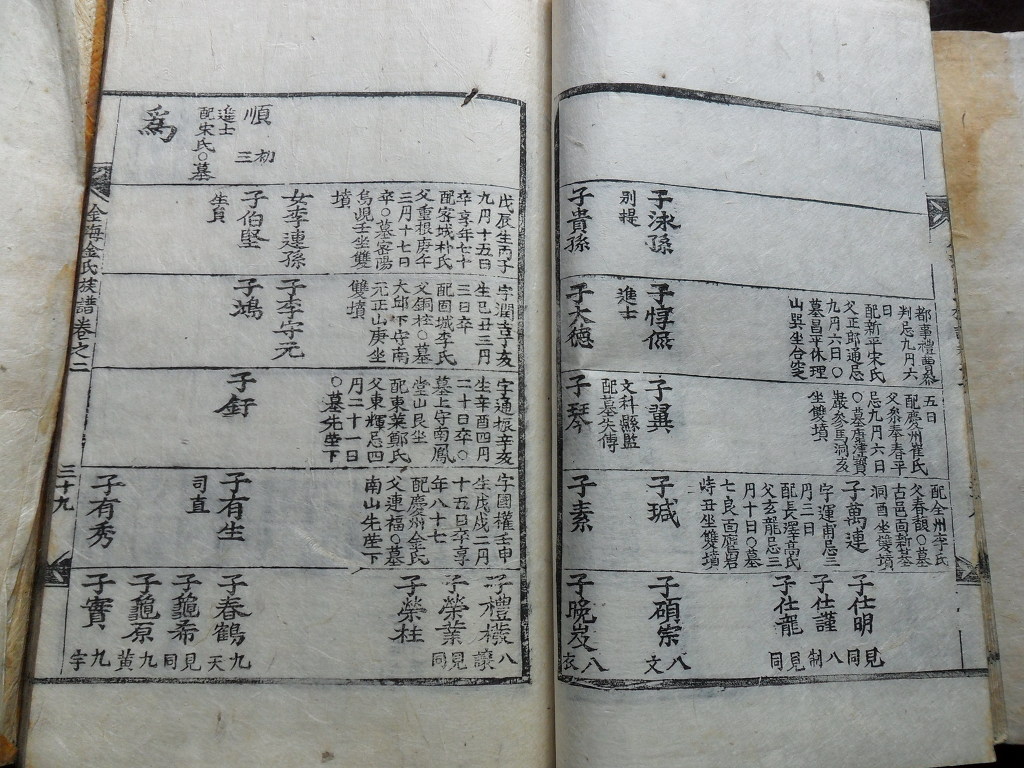 子泳孫
別提
子貴孫
都事禮曹叅
判忌九月六
日
配新平宋氏
父正郎通忌
九月六日○
墓昌平休理
山巽坐合窆
子惇僞
進士
子大德
五日
配慶州崔氏
父叅奉春平
忌九月六日
○墓唐津寶
巖參馬洞亥
坐雙墳
子翼
文科縣監
配墓失傳
子琴
配全州李氏
父春馥○墓
古邑面新基
洞酉坐雙墳
子萬連
字運甫忌三
月三日
配長澤高氏
父玄龍忌三
月十日○墓
七良面鷹岩
峙丑坐雙墳
子珹
子素
子仕明
見同
子仕謹
八制
子仕龍
見同
子碩宗
八文
子晩岌
八衣
順
初三
進士
配宋氏○墓
爲
戊辰生丙子
九月十五日
卒享年七十
配密城朴氏
父重根庚午
三月十七日
卒○墓密陽
烏峴壬坐雙
墳
女李連孫
子伯堅
生員
字潤吉丁亥
生己丑三月
三日卒
配固城李氏
父銅柱○墓
大邱下守南
元正山庚坐
雙墳
子李守元
子鴻
字通根辛亥
生辛酉四月
二十日卒○
墓上守南鳳
堂山艮坐
配東萊鄭氏
父東輝忌四
月二十一日
○墓先塋下
子釪
字國權壬申
生戊戌二月
十五日卒享
年八十七
配慶州金氏
父連福○墓
南山先塋下
子有生
司直
子有秀
子禮機
八讓
子榮業
見同
子榮柱
子春鶴
九天
子龜希
見同
子龜原
九黃
子實
九宇
金海金氏族譜卷之二
三十九